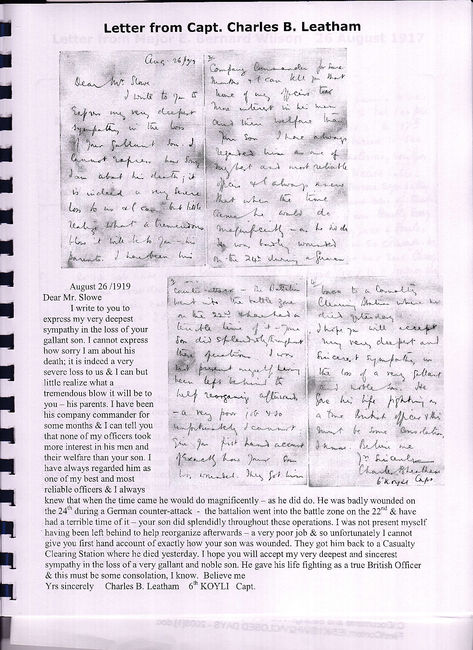 Letter from Capt. Charles B. Leatham
Aug 26/19
Dear Mr. Slowe
I write to you to
express my very deepest
sympathy in the loss
of your gallant son. I
cannot express how sorry
I am about his death; it
is indeed a very severe
loss to us & I can but little
realize what a tremendous
blow it will be to you – his
parents. I have been his
company commander for some
months & I can tell you that
none of my officers took
more interest in his men
and their welfare than
your son. I have always
regarded him as one of
my best and most reliable
officers & I always knew
that when the time
came he would do
magnificently – as he did do
He was badly wounded
on the 24th during a German
counter-attack – the battalion
went into the battle zone
on the 22nd & have had a
terrible time of it – your
son did splendidly throughout
these operations. I was
not present myself having
been left behind to
help reorganize afterwards
– a very poor job & so
unfortunately I cannot
give you first hand account
of exactly how your son
was wounded. They got him
back to a Casualty
Clearing Station where he
died yesterday.
I hope you will accept
my very deepest and
sincerest sympathy in
the loss of a very gallant
and noble son. He
gave his life fighting as
a true British officer & this
must be some consolation,
I know. Believe me
Yrs sincerely
Charles B Leatham
6th KOYLI Capt.
August 26 /1919
Dear Mr. Slowe
I write to you to
express my very deepest
sympathy in the loss of your
gallant son. I cannot express
how sorry I am about his
death; it is indeed a very
severe loss to us & I can but
little realize what a
tremendous blow it will be to
you – his parents. I have been
his company commander for
some months & I can tell you
that none of my officers took
more interest in his men and
their welfare than your son. I
have always regarded him as
one of my best and most
reliable officers & I always
knew that when the time came he would do magnificently – as he did do. He was badly wounded on
the 24th during a German counter-attack - the battalion went into the battle zone on the 22nd & have
had a terrible time of it – your son did splendidly throughout these operations. I was not present myself
having been left behind to help reorganize afterwards – a very poor job & so unfortunately I cannot
give you first hand account of exactly how your son was wounded. They got him back to a Casualty
Clearing Station where he died yesterday. I hope you will accept my very deepest and sincerest
sympathy in the loss of a very gallant and noble son. He gave his life fighting as a true British Officer
& this must be some consolation, I know. Believe me
Yrs sincerely Charles B. Leatham 6th KOYLI Capt.